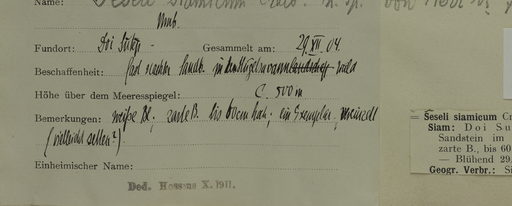 Name: Seseli siamicum Craib. n. sp.
Umb.
Fundort: Doi Sutep - Gesammelt am: 29. XII. 04.
Beschaffenheit: fast nackter Sandst. in wald
Höhe über dem Meeresspiegel: C. 500 m
Bemerkungen: weiße Bl., zarte B. bis 60cm hoch; ein Exemplar,
(vielleicht selten?)
Einheimischer Name:
Ded. Hosseus X. 1911.
Seseli siamicum Cr
Siam: Doi Su
Sandstein im
zarte B., bis 60
— Blühend 29.
Geogr. Verbr.: Si